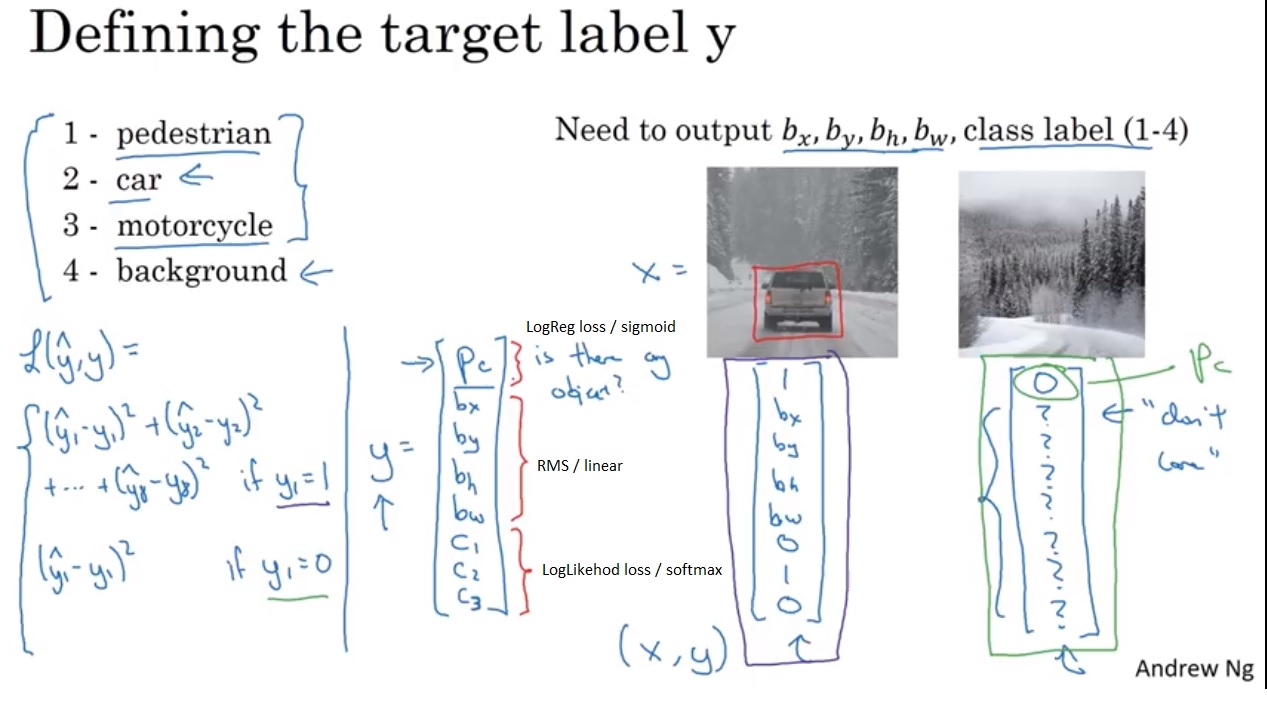 Defining the target label y
1 - pedestrian
2 - car ←
3 - motorcycle
4 - background ←
Need to output bx, by, bh, bw, class label (1-4)
x =
ℒ(ŷ,y) =
(ŷ₁-y₁)² + (ŷ₂-y₂)²
+ ... + (ŷ₈-y₈)² if y₁=1
(ŷ₁-y₁)² if y₁=0
LogReg loss / sigmoid
→ Pc is there any
object?
y =
bx
by
bh
bw
C₁
C₂
C₃
RMS / linear
LogLikehod loss / softmax
1
bx
by
bh
bw
0
1
0
(x,y)
0
?
?
?
?
?
?
?
Pc
← "don't
care"
Andrew Ng